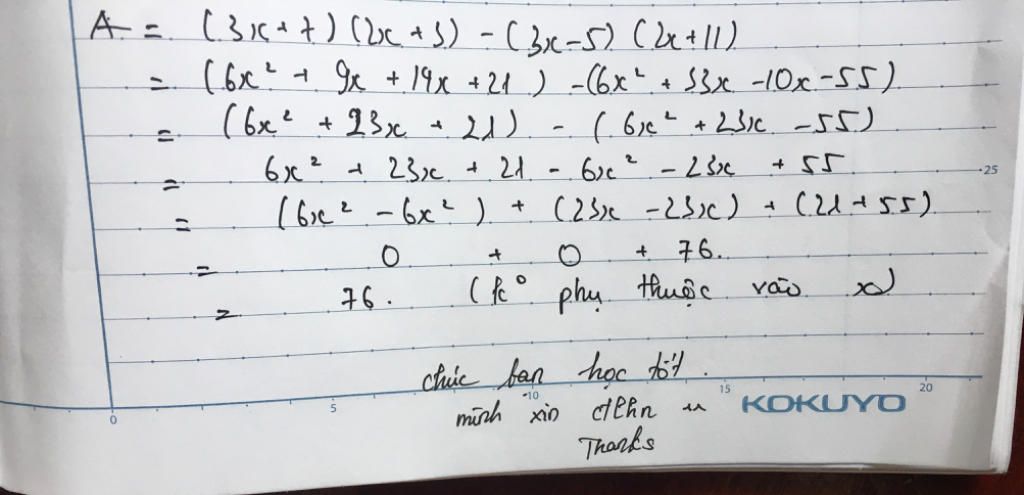 A = (3x + 7) (2x + 3) - (3x - 5) (2x + 11)
= (6x² + 9x + 14x + 21) - (6x² + 33x - 10x - 55)
= (6x² + 23x + 21) - (6x² + 23x - 55)
= 6x² + 23x + 21 - 6x² - 23x + 55
= (6x² - 6x²) + (23x - 23x) + (21 + 55)
= 0 + 0 + 76.
= 76. (k° phụ thuộc vào x)
chúc bạn học tốt.
mình xin ctlhn
Thanks
KOKUYO
0 5 10 15 20
25